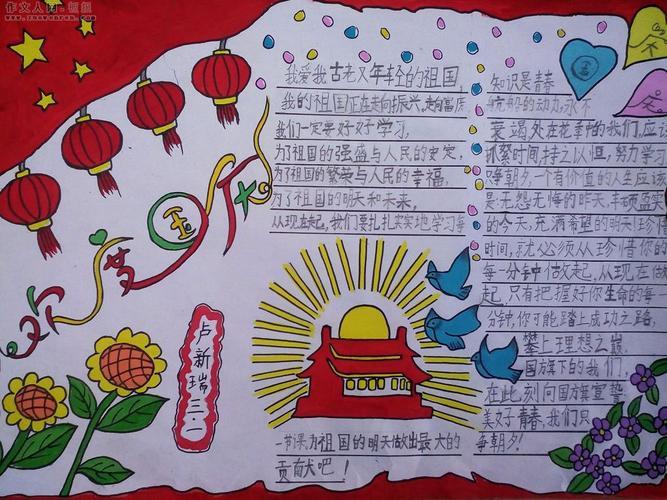 作文人网
欢度国庆
卢新瑞
我爱我古老又年轻的祖国,
我的祖国正在走向振兴,走向富庶
我们一定要好好学习,
为了祖国的强盛与人民的安定,
为了祖国的繁荣与人民的幸福,
为了祖国的明天和未来,
从现在起,我们要扎扎实实地学习每
一节课,为祖国的明天做出最大的
贡献吧!
知识是青春
航船的动力,永不
衰竭处在花季的我们,应
抓紧时间,持之以恒,努力学习
争朝夕一个有价值的人生应该
是无怨无悔的昨天,丰硕盈实
的今天,充满希望的明天!珍惜
时间,就必须从珍惜你的
每一分钟做起,从现在做
起,只有把握好你生命的每一
分钟,你可能踏上成功之路,
攀上理想之巅
国旗下的我们,
在此刻向国旗宣誓
美好青春,我们只
争朝夕!